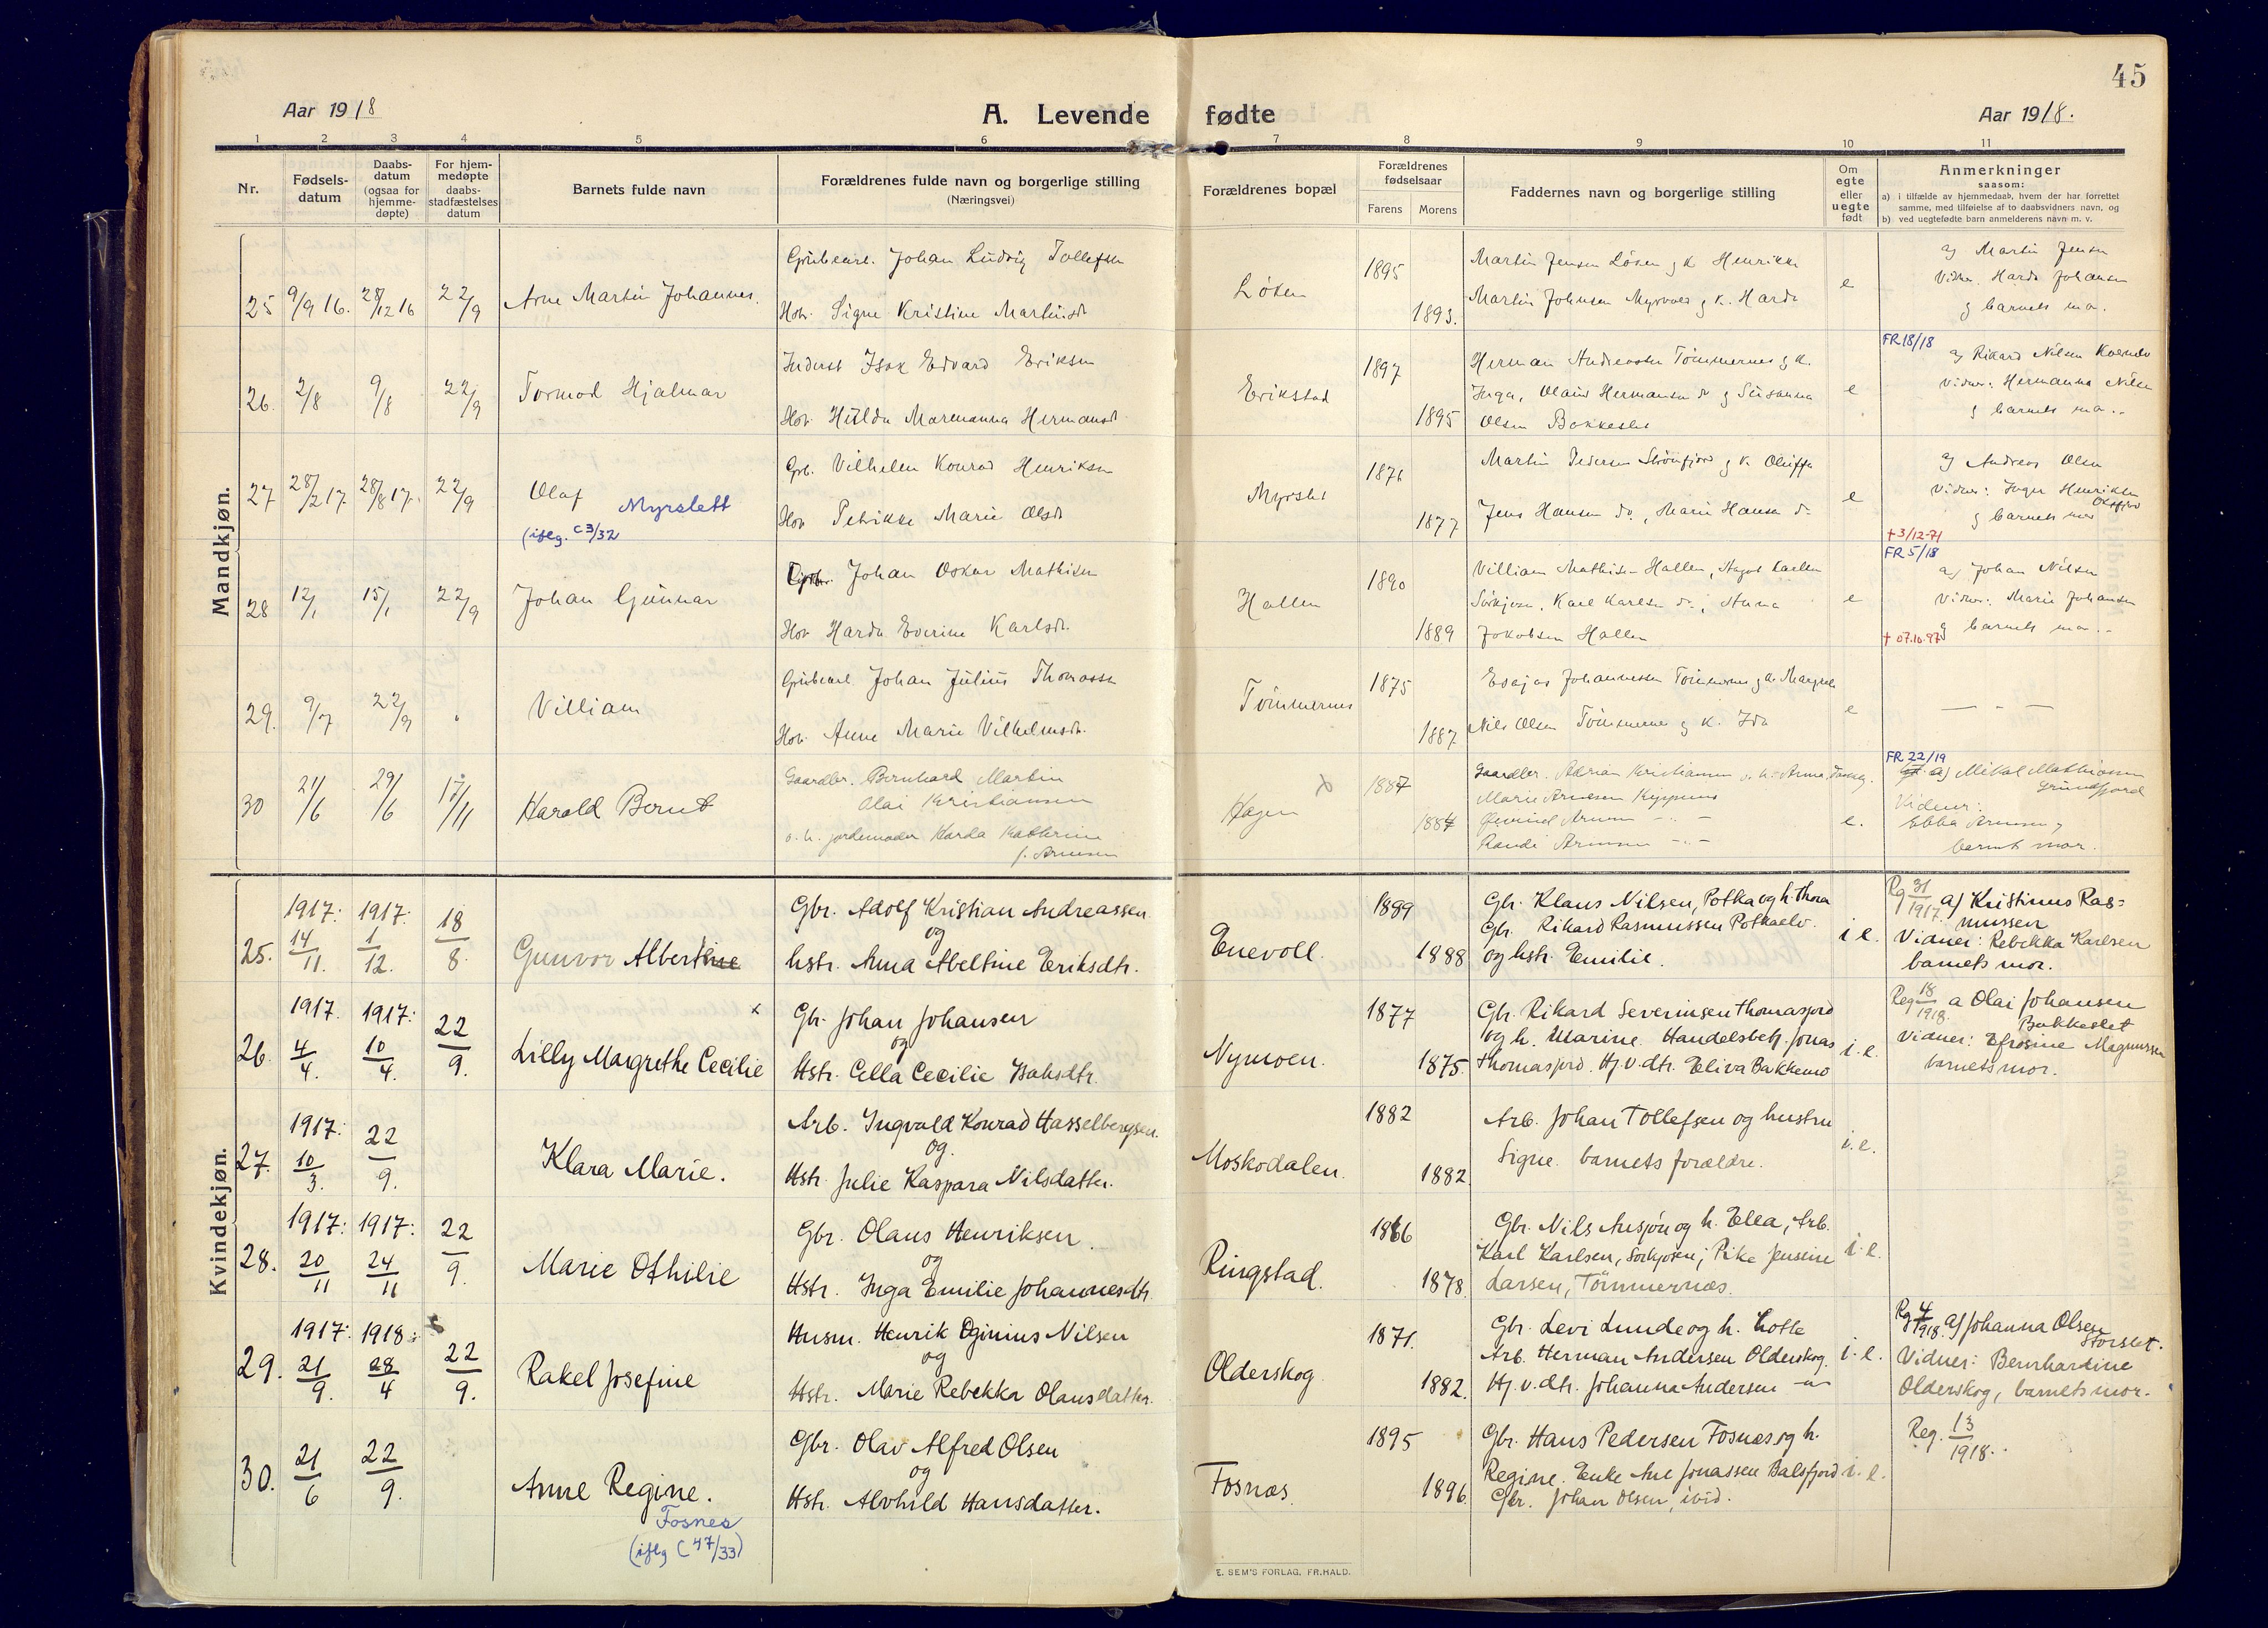 45
Aar 1918
A. Levende fødte
Aar 1918.
1 2 3 4 5 6 7 8 9 10 11
Nr.
Fødsels-
datum
Daabs-
datum
(ogsaa for
hjemme-
døpte)
For hjem-
medøpte
daabs-
stadfæstelses
datum
Barnets fulde navn
Forældrenes fulde navn og borgerlige stilling
(Næringsvei)
Forældrenes bopæl
Forældrenes
fødselsaar
Farens Morens
Faddernes navn og borgerlige stilling
Om
egte
eller
uegte
født
Anmerkninger
saasom:
a) i tilfælde av hjemmedaab, hvem der har forrettet
samme, med tilføielse af to daabsvidners navn, og
b) ved uegtefødte barn anmelderens navn m. v.
Mandkjøn.
25 9/9 16. 28/12 16 22/9
Arne Martin Johannes.
Johan Ludvig Tollefsen
Signe Kristine Martinsdt
Løken
1895
1893.
Martin Jensen Løken g k Henrikke
Martin Johnsen g k. Harda
e
a) Martin Jensen
Vidner. Harda Johansen
g barnets mor.
26. 2/8 9/8 22/9
Tormod Hjalmar
Inderst Isak Edvard Eriksen
Hulda Marenanna Hermansdt
Erikstad
1897
1895
Herman Andreassen Tömmernes g k.
Inga, Olaus Hermansen do g Susanna
Olsen Bakkeslet
e
FR 18/18
a) Rikard Nilsen
Vidner: Hermanna Nilsen
g barnets mor..
27 28/2 17. 28/8 17. 22/9
Olaf Myrslett
(ifølg. C 3/32
Gbr. Vilhelm Konrad Henriksen
Petrikke Marie Olsdt
Myrslet
1876
1877
Martin Pedersen g k Oluffa
Jens Hansen do., Marie Hansen do
e
a) Andreas Olsen
Vidner: Inger Henriksen
g barnets mor
† 3/12-71
28 12/1 15/1 22/9
Johan Gunnar
Johan Oskar Mathisen
Harda Everine Karlsdt.
Hallen
1890
1889
Villiam Mathisen Hallen,
Sørkjosen, Karl Karlsen do., Anna
Jakobsen Hallen
e
FR 5/18
a) Johan Nilsen
Vidner: Marie Johansen
g barnets mor..
† 07.10.97
29. 9/7 22/9
Villiam
Johan Julius Thomassen
Anne Marie Vilhelmsdt.
Tömmernes
1875
1887
Esajas Johannessen Tömmernes g k. Margrete
Nils Olsen Tömmernes g k. Ida
e
— „ —
30 21/6 29/6 17/11
Harald Bernt
Gaardbr. Bernhard Martin
Olai Kristiansen
o. h. jordemoder Harda Kathrine
f. Arnesen
Hagen
1887
1884
Gaardbr. Adrian Kristiansen o. h. Anna,
Marie Arnesen
Øivind Arnesen -„-
Randi Arnesen -„-
e.
FR 22/19
a) Mikal Mathiassen
Grundfjord
Vidner:
Ebba Arnesen,
barnets mor.
Kvindekjøn.
25. 1917: 14/11. 1917: 1/12. 18/8.
Gunvor Albertine
Gbr. Adolf Kristian Andreassen
og
hstr. Anna Abeltine Eriksdtr.
Enevoll.
1889
1888
Gbr. Klaus Nilsen, Potka og h. Thora
Gbr. Rikard Rasmussen Potkaelv.
og hstr. Emilie.
i e.
Rg 31/1917. a) Kristinus Ras=
mussen
Vidner: Rebekka Karlsen
barnets mor.
26. 1917. 4/4. 1917: 10/4. 22/9.
Lilly Margrethe Cecilie
x
Gbr. Johan Johansen
og
Hstr. Cella Cecilie Isaksdtr.
Nymoen.
1877
1875.
Gbr. Rikard Severinsen Thomasjord
og h. Marine. Handelsbetj. Jonas
Thomasjord. Hj. v. dtr. Eliva Bakkemo
i. e.
Reg 18/1918. a Olai Johansen
Bakkeslet
Vidner: Efrosine Magnussen
barnets mor.
27. 1917: 10/3. 22/9.
Klara Marie.
Arb. Ingvald Konrad Hasselbergsen.
og.
Hstr. Julie Kaspara Nilsdatter.
Moskodalen.
1882
1882.
Arb. Johan Tollefsen og hustru
Signe. barnets forældre.
i. e.
28. 1917: 20/11 1917: 24/11 22/9.
Marie Othilie
Gbr. Olaus Henriksen.
og
Hstr. Inga Emilie Johannesdtr.
Ringstad.
1866
1878.
Gbr. Nils Ansjøn og h. Ella, Arb.
Karl Karlsen, Sørkjosen; Pike Jensine
Larsen, Tömmernæs.
i. e.
29. 1917: 21/9. 1918: 28/4 22/9.
Rakel Josefine
Husm. Henrik Oginius Nilsen
og
Hstr. Marie Rebekka Olausdatter.
Olderskog.
1871.
1882.
Gbr. Levi Lunde og h. Lotte
Arb. Herman Andersen Olderskog.
Hj. v. dtr. Johanna Andersen -„-
i. e.
Rg 4/1918. a) Johanna Olsen
Storslet.
Vidner: Bernhardine
Olderskog, barnets mor.
30. 21/6 22/9.
Anne Regine.
Fosnes
(ifølg C 47/33)
Gbr. Olav Alfred Olsen
og
Hstr. Alvhild Hansdatter.
Fosnæs.
1895
1896.
Gbr. Hans Pedersen Fosnæs og h.
Regine. Enke Ane Jonassen Balsfjord
Gbr. Johan Olsen, ibid.
i. e.
Reg. 13/1918.
E. SEM'S FORLAG, FR.HALD.